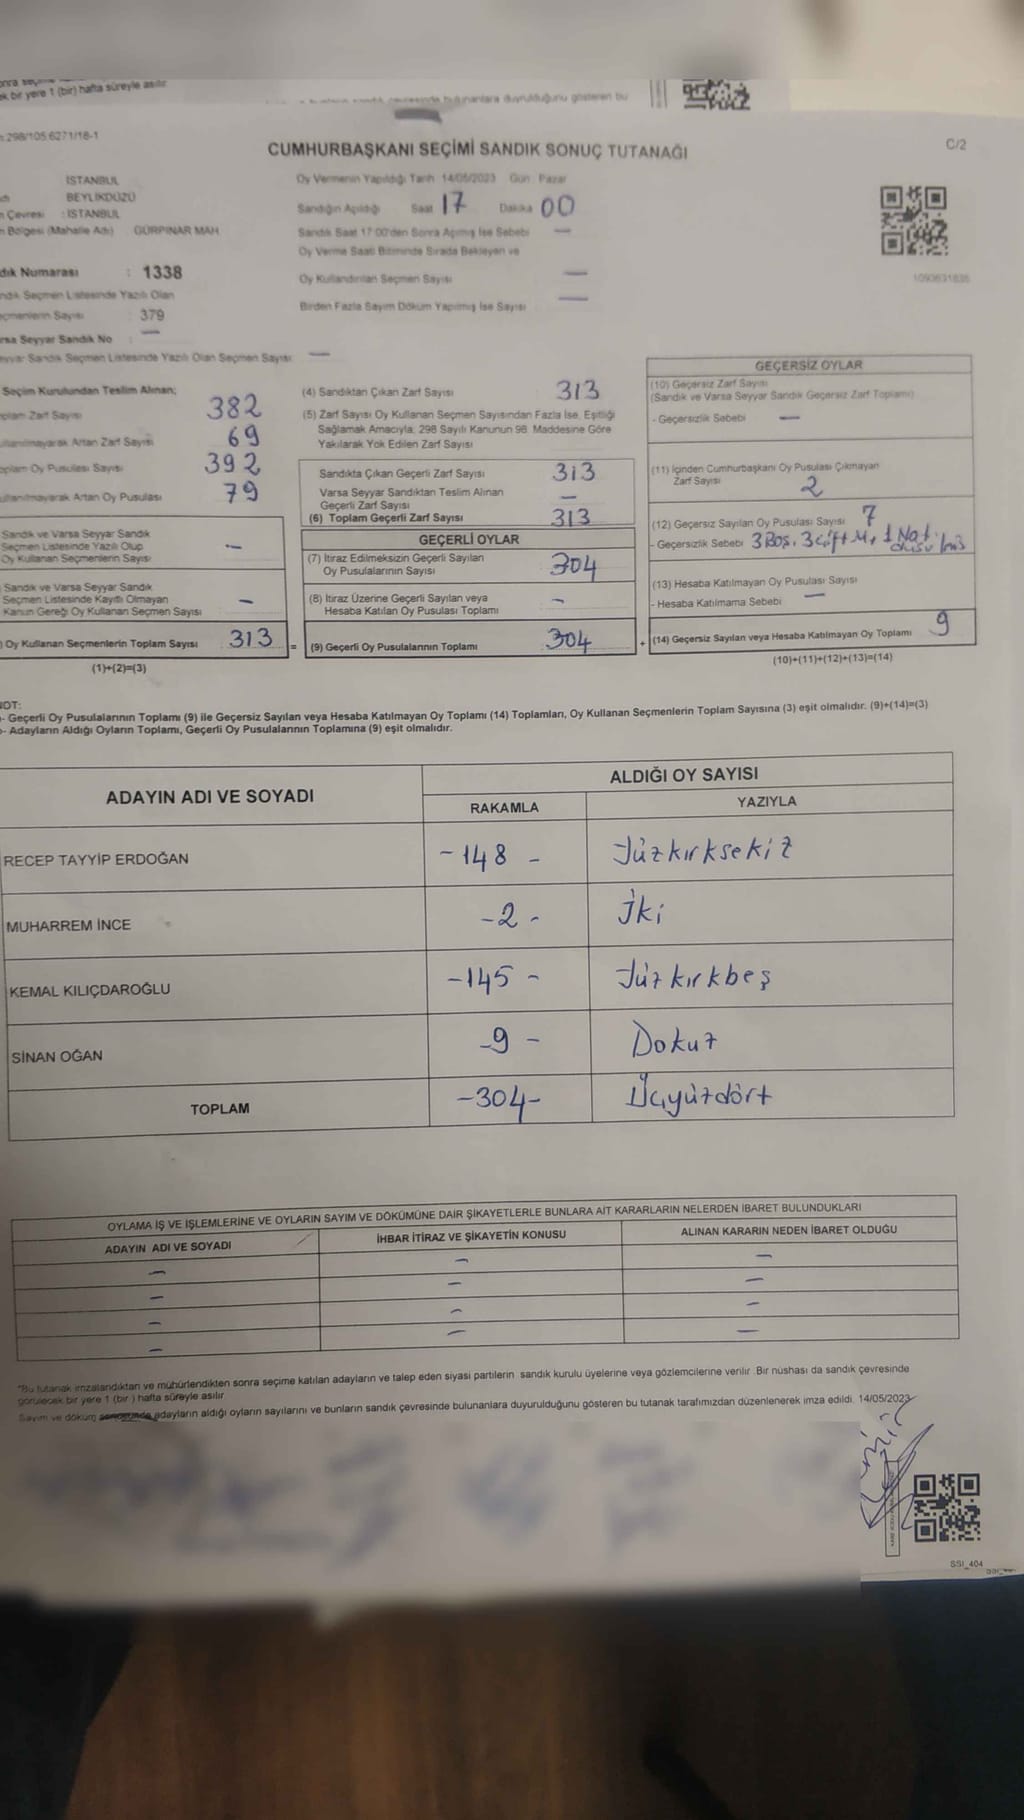 ek bir yere 1 (bir) hafta süreyle asılır
bulunanlara duyurulduğunu gösteren bu
298/105.6271/18-1
C/2
CUMHURBAŞKANI SEÇİMİ SANDIK SONUÇ TUTANAĞI
İSTANBUL
BEYLİKDÜZÜ
Çevresi : İSTANBUL
Bölgesi (Mahalle Adı) GÜRPINAR MAH.
dık Numarası : 1338
ndık Seçmen Listesinde Yazılı Olan
eçmenlerin Sayısı : 379
rsa Seyyar Sandık No : —
eyyar Sandık Seçmen Listesinde Yazılı Olan Seçmen Sayısı: —
Oy Vermenin Yapıldığı Tarih 14/05/2023 Gün: Pazar
Sandığın Açıldığı Saat 17 Dakika 00
Sandık Saat 17:00'den Sonra Açımış İse Sebebi —
Oy Verme Saati Bitiminde Sırada Bekleyen ve
Oy Kullandırılan Seçmen Sayısı —
Birden Fazla Sayım Döküm Yapılmış İse Sayısı —
1090631835
Seçim Kurulundan Teslim Alınan;
oplam Zarf Sayısı 382
ullanılmayarak Artan Zarf Sayısı 69
oplam Oy Pusulası Sayısı 392
ullanılmayarak Artan Oy Pusulası 79
Sandık ve Varsa Seyyar Sandık
Seçmen Listesinde Yazılı Olup
Oy Kullanan Seçmenlerin Sayısı —
Sandık ve Varsa Seyyar Sandık
Seçmen Listesinde Kayıtlı Olmayan
Kanun Gereği Oy Kullanan Seçmen Sayısı —
) Oy Kullanan Seçmenlerin Toplam Sayısı 313 =
(1)+(2)=(3)
(4) Sandıktan Çıkan Zarf Sayısı 313
(5) Zarf Sayısı Oy Kullanan Seçmen Sayısından Fazla İse, Eşitliği
Sağlamak Amacıyla; 298 Sayılı Kanunun 98. Maddesine Göre
Yakılarak Yok Edilen Zarf Sayısı
Sandıkta Çıkan Geçerli Zarf Sayısı 313
Varsa Seyyar Sandıktan Teslim Alınan
Geçerli Zarf Sayısı —
(6) Toplam Geçerli Zarf Sayısı 313
GEÇERLİ OYLAR
(7) İtiraz Edilmeksizin Geçerli Sayılan
Oy Pusulalarının Sayısı 304
(8) İtiraz Üzerine Geçerli Sayılan veya
Hesaba Katılan Oy Pusulası Toplamı —
(9) Geçerli Oy Pusulalarının Toplamı 304 +
GEÇERSİZ OYLAR
(10) Geçersiz Zarf Sayısı
(Sandık ve Varsa Seyyar Sandık Geçersiz Zarf Toplamı)
- Geçersizlik Sebebi —
(11) İçinden Cumhurbaşkanı Oy Pusulası Çıkmayan
Zarf Sayısı 2
(12) Geçersiz Sayılan Oy Pusulası Sayısı 7
- Geçersizlik Sebebi 3 Boş, 3 Çift M, 1
(13) Hesaba Katılmayan Oy Pusulası Sayısı
- Hesaba Katılmama Sebebi —
(14) Geçersiz Sayılan veya Hesaba Katılmayan Oy Toplamı 9
(10)+(11)+(12)+(13)=(14)
NOT:
- Geçerli Oy Pusulalarının Toplamı (9) ile Geçersiz Sayılan veya Hesaba Katılmayan Oy Toplamı (14) Toplamları, Oy Kullanan Seçmenlerin Toplam Sayısına (3) eşit olmalıdır. (9)+(14)=(3)
- Adayların Aldığı Oyların Toplamı, Geçerli Oy Pusulalarının Toplamına (9) eşit olmalıdır.
ADAYIN ADI VE SOYADI
ALDIĞI OY SAYISI
RAKAMLA YAZIYLA
RECEP TAYYİP ERDOĞAN -148- Yüzkırksekiz
MUHARREM İNCE -2- İki
KEMAL KILIÇDAROĞLU -145- Yüzkırkbeş
SİNAN OĞAN -9- Dokuz
TOPLAM -304- Üçyüzdört
OYLAMA İŞ VE İŞLEMLERİNE VE OYLARIN SAYIM VE DÖKÜMÜNE DAİR ŞİKAYETLERLE BUNLARA AİT KARARLARIN NELERDEN İBARET BULUNDUKLARI
ADAYIN ADI VE SOYADI İHBAR İTİRAZ VE ŞİKAYETİN KONUSU ALINAN KARARIN NEDEN İBARET OLDUĞU
— — —
— — —
— — —
— — —
*Bu tutanak imzalandıktan ve mühürlendikten sonra seçime katılan adayların ve talep eden siyasi partilerin sandık kurulu üyelerine veya gözlemcilerine verilir. Bir nüshası da sandık çevresinde
görülecek bir yere 1 (bir) hafta süreyle asılır
Sayım ve döküm sonucunda adayların aldığı oyların sayılarını ve bunların sandık çevresinde bulunanlara duyurulduğunu gösteren bu tutanak tarafımızdan düzenlenerek imza edildi. 14/05/2023
SSI_404